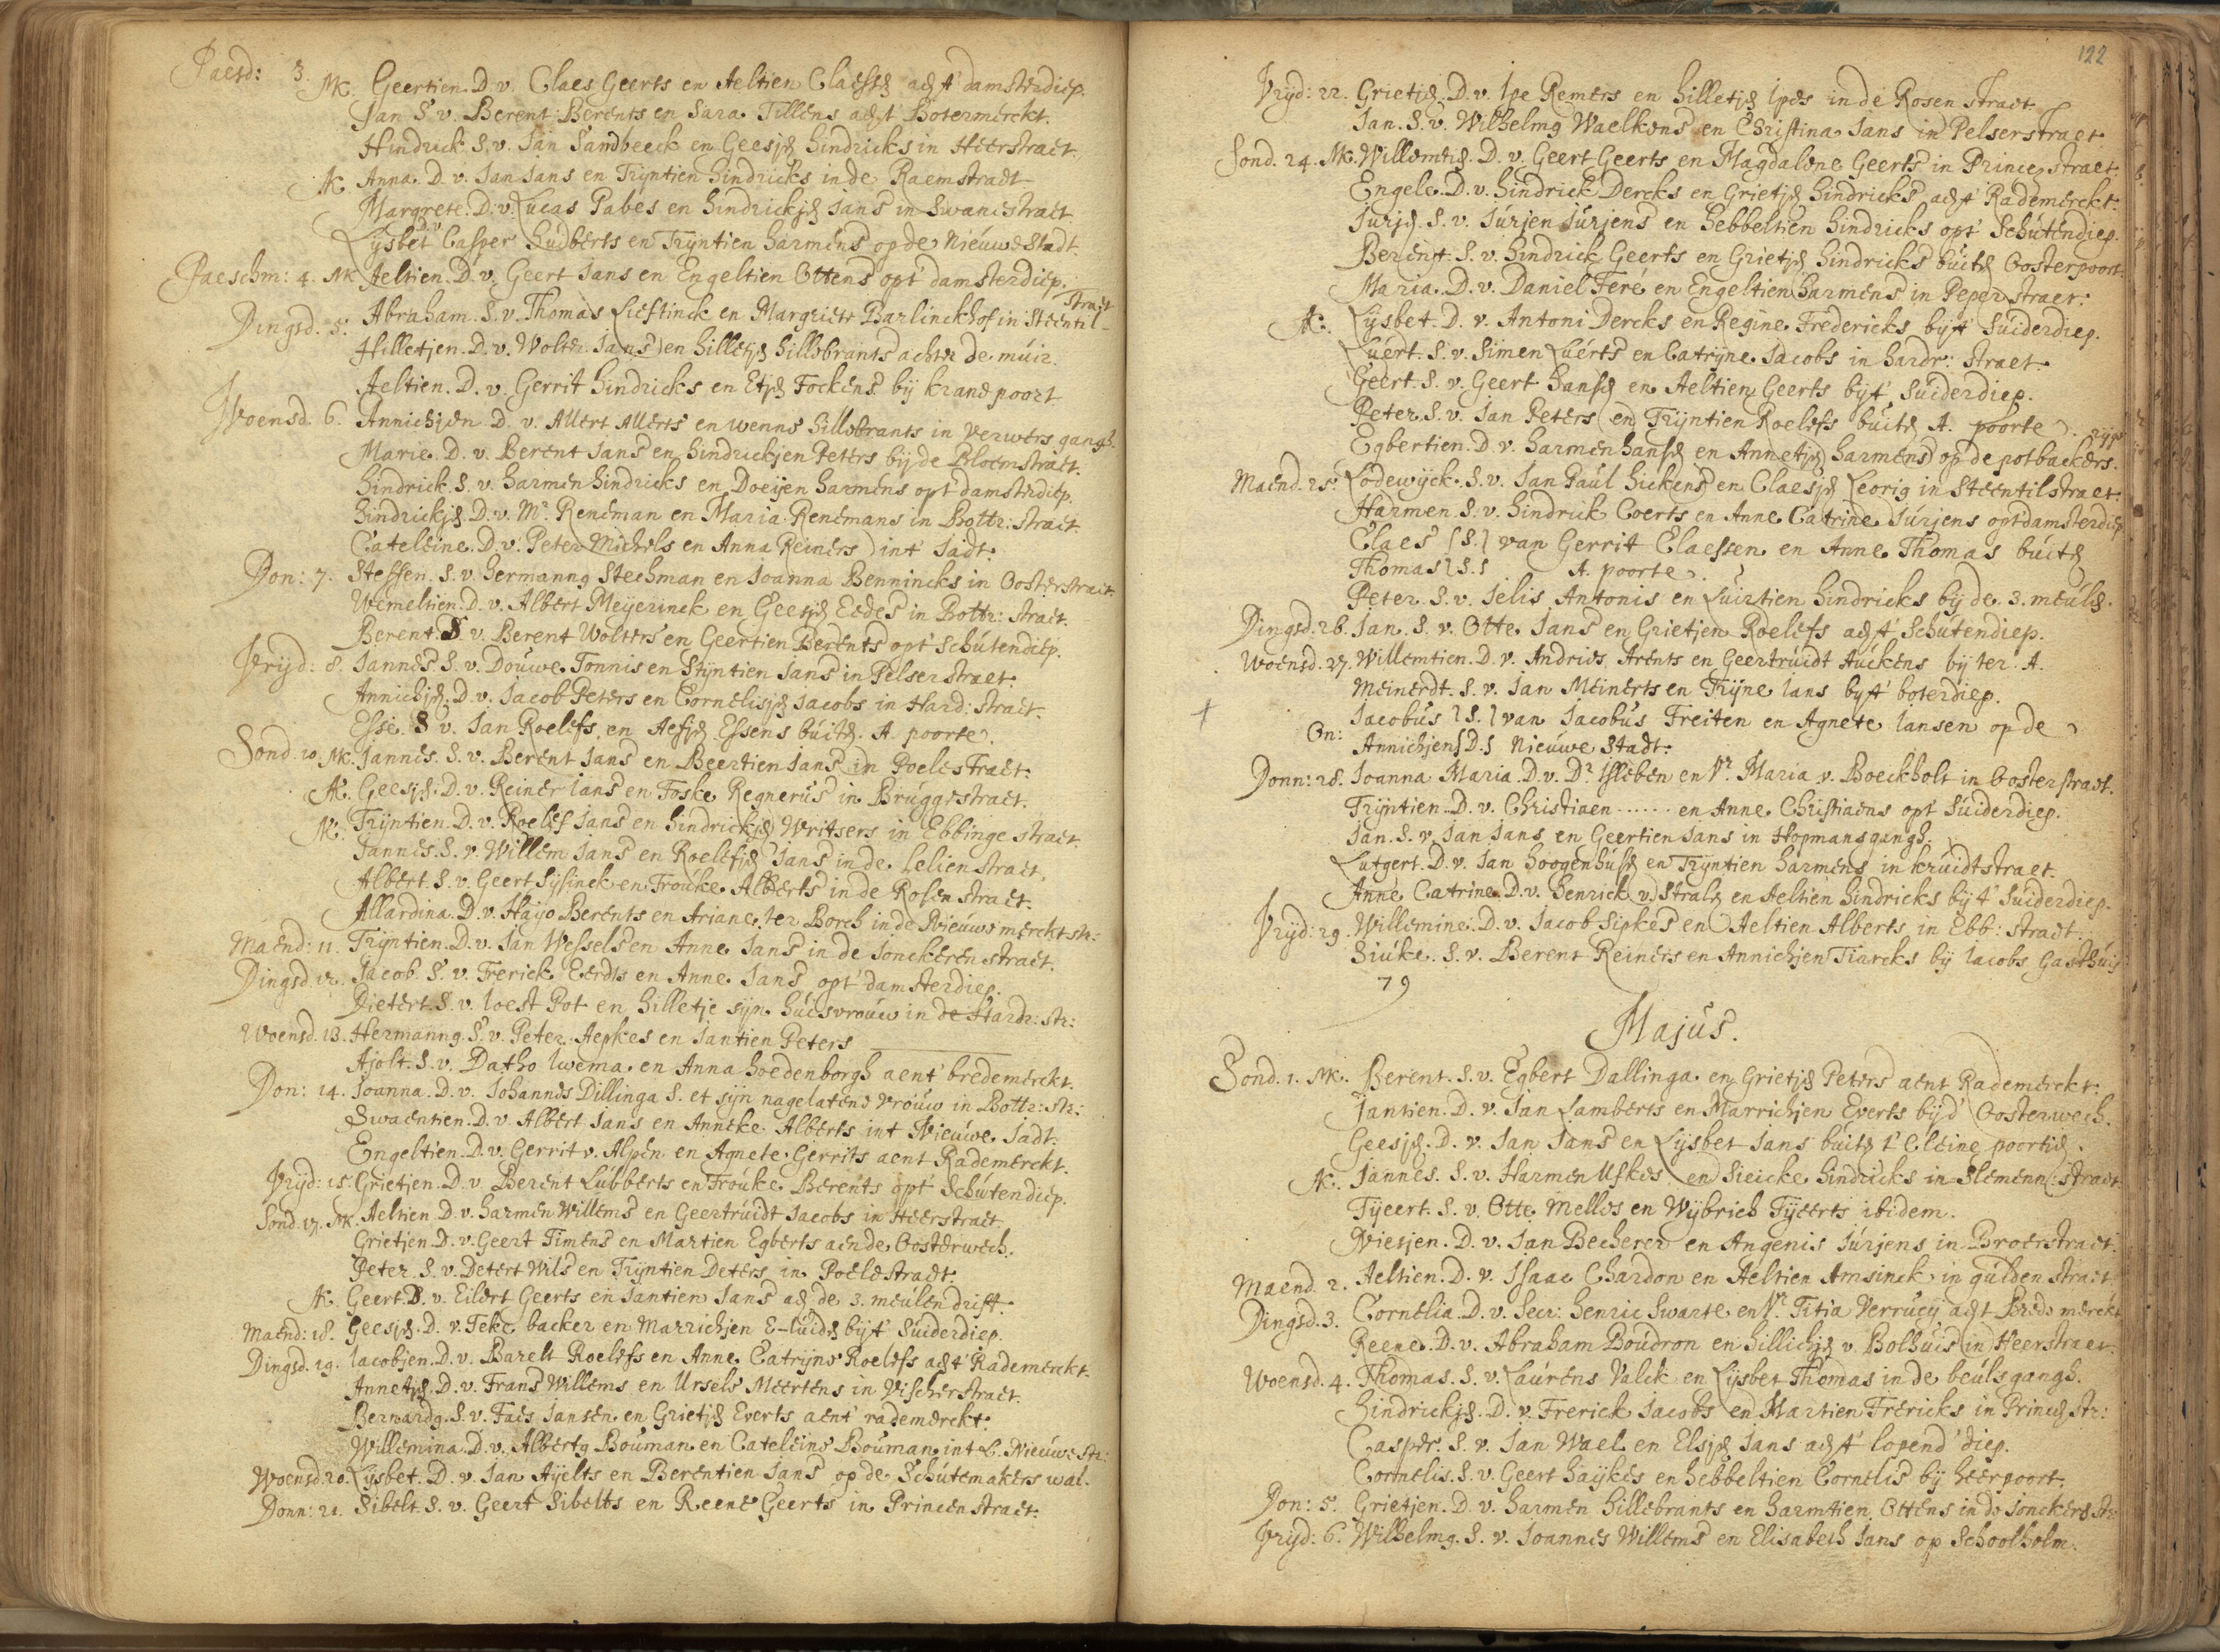 Paesd: 3. NK. Geertien. D. v. Claes Geerts en Aeltien Claessen aen t' damsterdiep.
Jan S. v. Berent Berents en Sara Tillens aen t' Botermerckt.
Hindrick. S. v. Jan Sandbeeck en Geesjen Hindricks in Heerstraet.
AK. Anna. D. v. Jan Jans en Trijntien Hindricks in de Raemstraet
Margrete. D. v. Lucas Pabes en Hindrickjen Jans in Swanestraet.
Lijsbet D.v. Casper Hudberts en Trijntien Harmens op de Nieuwe Stadt.
Paeschm: 4. NK Aeltien. D. v. Geert Jans en Engeltien Ottens opt' damsterdiep.
Dingsd. 5. Abraham. S. v. Thomas Lieftinck en Margriete Barlinckhof in Steentil-straet
Hilletjen. D. v. Wolter Jans en Hilletjen Hillebrants achter de muir.
Aeltien. D. v. Gerrit Hindricks en Etjen Fockens bij kranepoort
Woensd. 6. Annichjen D. v. Allert Allerts en wenne Hillebrants in Verwers gangh.
Marie. D. v. Berent Jans en Hindrickjen Peters bij de Bloemstraet.
Hindrick. S. v. Harmen Hindricks en Doeijen Harmens opt' damsterdiep.
Hindrickjen. D. v. Mr. Reneman en Maria Renemans in Bottr: straet.
Cateleine. D. v. Peter Michels en Anna Reiners int' Jadt.
Don: 7. Steffen. S. v. Hermannus Stechman en Joanna Bennincks in Oosterstraet.
Wemeltien. D. v. Albert Meijerinck en Geesjen Eedes in Bottr: straet.
Berent. S. v. Berent Wolters en Geertien Berents opt' Schutendiep.
Vrijd: 8. Jannes S. v. Douwe Tonnis en Stijntien Jans in Pelserstraet.
Annichjen. D. v. Jacob Peters en Cornelisjen Jacobs in Hard: straet.
Esse. S v. Jan Roelefs en Aefjen Essens buiten. A. poorte.
Sond. 10. NK. Jannes. S. v. Berent Jans en Beertien Jans in Poelestraet.
AK. Geesjen. D. v. Reiner Jans en Foske Regnerus in Bruggestraet.
NK. Trijntien. D. v. Roelef Jans en Hindrickjen Writsers in Ebbinge straet.
Jannes. S. v. Willem Jans en Roelefjen Jans in de Lelienstraet.
Albert. S. v. Geert Sijsinck en Frouke Alberts in de Rosen straet.
Allardina. D. v. Haijo Berents en Ariane ter Borch in de Nieuwe merckt str:
Maend: 11. Trijntien. D. v. Jan Wessels en Anne Jans in de Jonckeren straet.
Dingsd. 12. Jacob. S. v. Frerick Eerdts en Anne Jans opt' damsterdiep.
Dietert. S. v. Joest Pot en Hilletje sijn huisvrouw in de Hardr: str:
Woensd. 13. Hermannus. S. v. Peter Aepkes en Jantien Peters
Ajolt. S. v. Datho Iwema en Anna Hoedenborgh aent' bredemerckt.
Don: 14. Joanna. D. v. Johannes Dillinga S. et sijn nagelatene vrouw in Bottr: str:
Swaentien. D. v. Albert Jans en Anneke Alberts int Nieuwe Jadt.
Engeltien. D. v. Gerrit v. Alpen en Agnete Gerrits aent Rademerckt.
Vrijd: 15. Grietjen. D. v. Berent Lubberts en Frouke Berents opt' Schutendiep.
Sond. 17. NK. Aeltien D. v. Harmen Willems en Geertruidt Jacobs in Heerstraet.
Grietjen. D. v. Geert Timens en Martien Egberts aen de Oosterwech.
Peter. S. v. Detert Wils en Trijntien Deters in Poelestraet.
AK. Geert. S. v. Eilert Geerts en Jantien Jans aen de 3. meulendrift.
Maend: 18. Geesjen. D. v. Teke backer en Marrichjen E-luides bijt' Suiderdiep.
Dingsd. 19. Jacobjen. D. v. Barelt Roelefs en Anne Catrijne Roelefs aen t' Rademerckt.
Annetjen. D. v. Frans Willems en Ursele Meertens in Visscherstraet.
Bernardus. S. v. Faes Jansen en Grietjen Everts aent' rademerckt.
Willemina. D. v. Albertus Bouman en Cateleine Bouman int L. Nieuwe str:
Woensd 20. Lijsbet. D. v. Jan Aijelts en Berentien Jans op de Schutemakers wal.
Donn: 21. Sibelt S. v. Geert Sibelts en Reene Geerts in Princen straet.
122
Vrijd: 22. Grietjen. D. v. Ipe Remers en Hilletjen Ipes in de Rosen straet.
Jan. S. v. Wilhelmus Waelkens en Christina Jans in Pelserstraet
Sond. 24. NK. Willemtien. D. v. Geert Geerts en Magdalene Geerts in Princen straet.
Engele. D. v. Hindrick Dercks en Grietjen Hindricks aen t' Rademerckt.
Jurjen. S. v. Jurjen Jurjens en Hebbeltien Hindricks opt' Schutendiep.
Berent. S. v. Hindrick Geerts en Grietjen Hindricks buiten Oosterpoort.
Maria. D. v. Daniel Feré en Engeltien Harmens in Peperstraet.
AK. Lijsbet. D. v. Antoni Dercks en Regine Fredericks bijt' Suiderdiep.
Luert. S. v. Simen Luerts en Catrijne Jacobs in Hardr: straet.
Geert. S. v. Geert Hansen en Aeltien Geerts bijt' Suiderdiep.
Peter. S. v. Jan Peters en Trijntien Roelefs buiten A. poorte.
Egbertien. D. v. Harmen Hansen en Annetjen Harmens op de potbackers. rijpe
Maend. 25. Lodewijck. S. v. Jan Paul Hickens en Claesjen Leorig in Steentilstraet.
Harmen. S. v. Hindrick Coerts en Anne Catrine Jurjens opt damsterdiep
Claes {S.} van Gerrit Claessen en Anne Thomas buiten
Thomas {S.} A. poorte.
Peter. S. v. Jelis Antonis en Luirtien Hindricks bij de 3. meulen.
Dingsd. 26. Jan. S. v. Otte Jans en Grietjen Roelefs aen t' Schutendiep.
Woensd. 27. Willemtien. D. v. Andries Arents en Geertruidt Auckens bij ter A.
Meinerdt. S. v. Jan Meinerts en Trijne Jans bijt' boterdiep.
On: Jacobus {S.} van Jacobus Freiten en Agnete Jansen op de
Annichjen {D.} Nieuwe Stadt.
Donn: 28. Joanna Maria. D. v. Dr. Isleben en Vr. Maria v. Boeckholt in Oosterstraet.
Trijntien. D. v. Christiaen ...... en Anne Christiaens opt' Suiderdiep.
Jan. S. v. Jan Jans en Geertien Jans in Hopmansgangh.
Lutgert. D. v. Jan Hoogenhuisen en Trijntien Harmens in kruidtstraet.
Anne Catrine. D. v. Henrick v. Stralen en Aeltien Hindricks bijt' Suiderdiep.
Vrijd: 29. Willemine. D. v. Jacob Sipkes en Aeltien Alberts in Ebb: straet.
Siuke. S. v. Berent Reiners en Annichjen Tiarcks bij Jacobs Gasthuis
79
Majus.
Sond. 1. NK. Berent. S. v. Egbert Dallinga en Grietjen Peters aent Rademerckt.
Jantien. D. v. Jan Lamberts en Marrichjen Everts bijd' Oosterwech.
Geesjen. D. v. Jan Jans en Lijsbet Jans buiten t' Cleine poortien.
AK. Jannes. S. v. Harmen Ufkes en Sieicke Hindricks in Slemenn: straet
Tijeert. S. v. Otte Melles en Wijbrich Tijeerts ibidem.
Niesjen. D. v. Jan Becherer en Angenis Jurjens in Broerstraet.
Maend. 2. Aeltien. D. v. Isaac Chardon en Aeltien Amsinck in gulden straet
Dingsd. 3. Cornelia. D. v. Secr: Henric Swarte en Vr. Titia Verrucij aen t Brede merckt
Reene. D. v. Abraham Boudron en Hillichjen v. Bolhuis in Heerstraet.
Woensd. 4. Thomas. S. v. Laurens Valck en Lijsbet Thomas in de beulsgangh.
Hindrickjen. D. v. Frerick Jacobs en Martien Frericks in Princen str:
Casper. S. v. Jan Wael en Elsjen Jans aen t' lopend' diep.
Cornelis. S. v. Geert Haijkes en Hebbeltien Cornelis bij heerpoort.
Don: 5. Grietjen. D. v. Harmen Hillebrants en Harmtien Ottens in de Jonckeren str:
Vrijd: 6. Wilhelmus. S. v. Joannes Willems en Elisabeth Jans op Schoolholm.